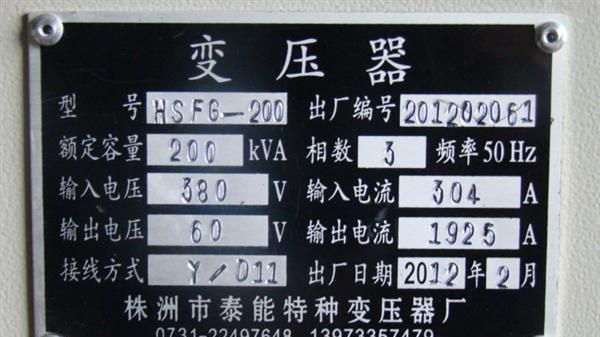 变压器
型号 HSFG-200 出厂编号 201202061
额定容量 200 kVA 相数 3 频率50Hz
输入电压 380 V 输入电流 304 A
输出电压 60 V 输出电流 1925 A
接线方式 Y/D11 出厂日期 2012年2月
株洲市泰能特种变压器厂
0731-22497648 13973357479